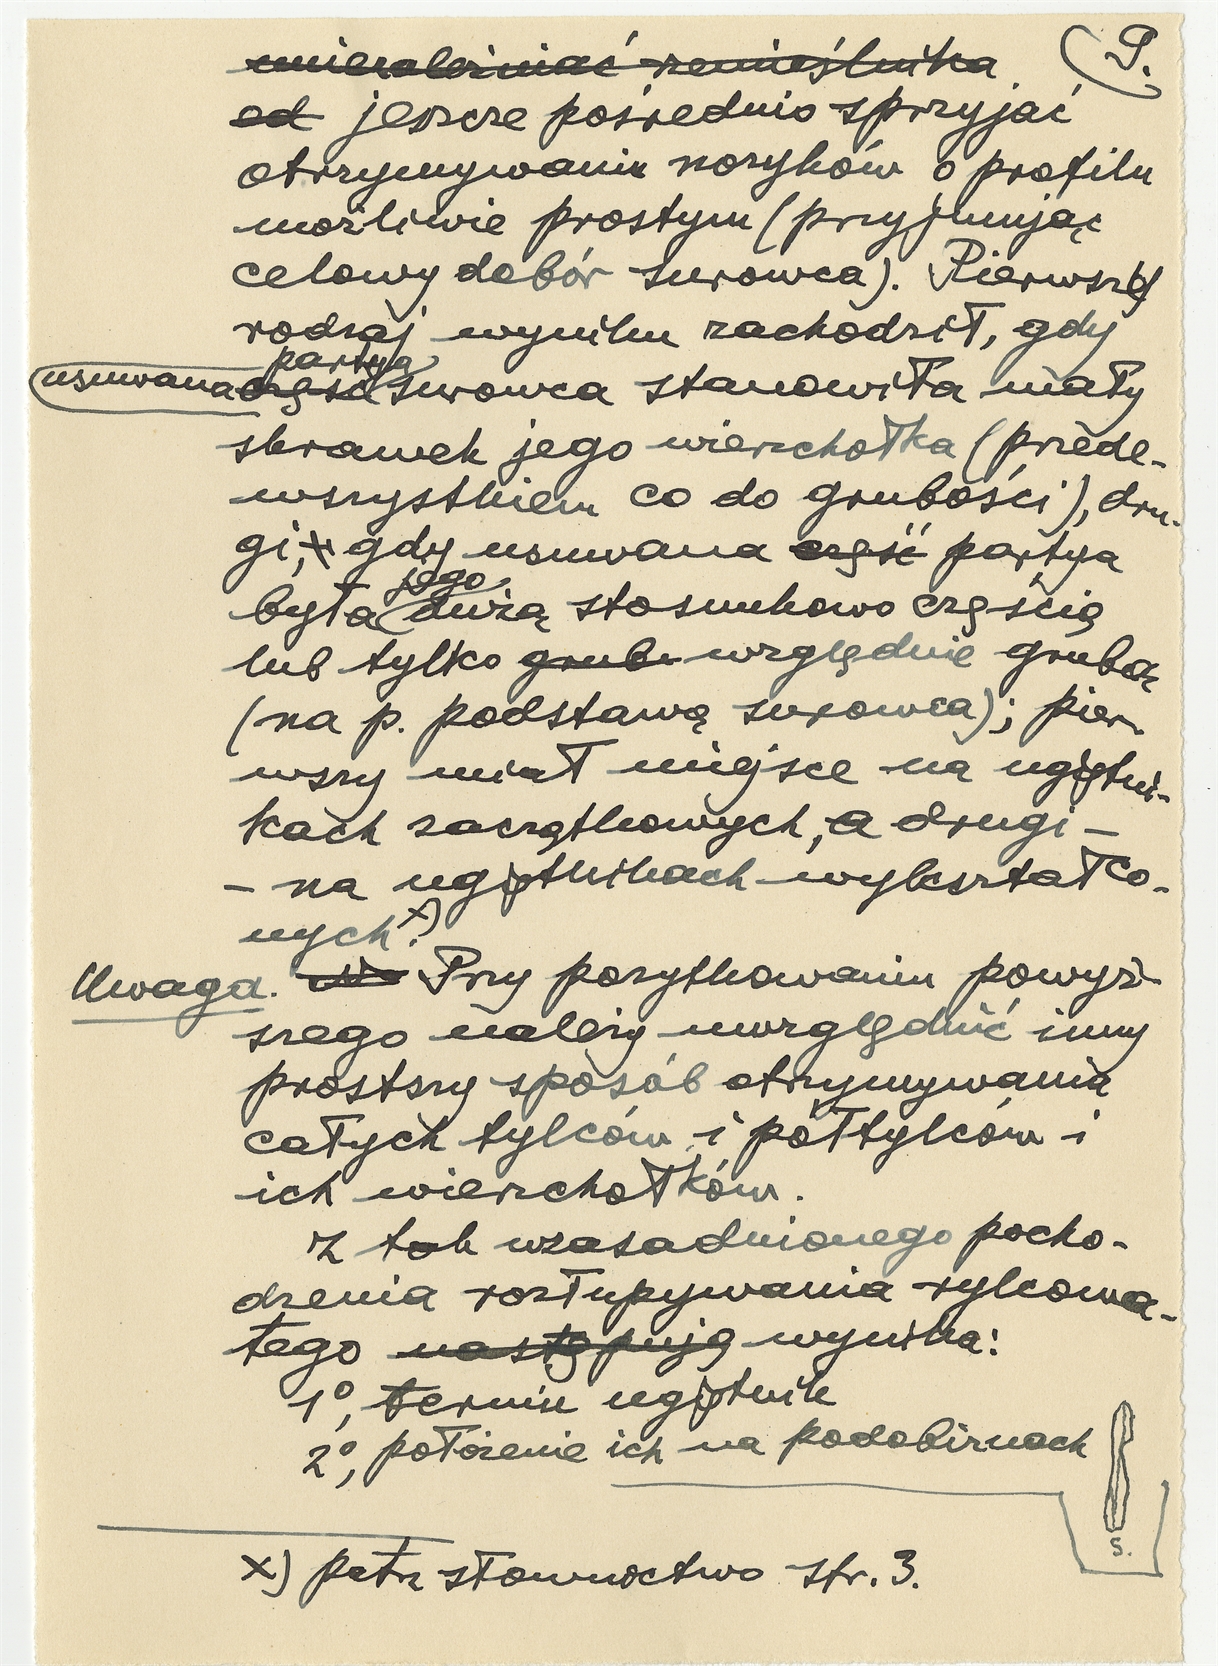 P.
uniezależniać rzemieślnika
od jeszcze pośrednio sprzyjać
otrzymywaniu nożyków o profilu
możliwie prostym (przyjmując
celowy dobór surowca). Pierwszy
rodzaj wyniku zachodził, gdy
partya
usuwana część surowca stanowiła mały
skrawek jego wierzchołka (przede-
wszystkiem co do grubości), dru-
gi, gdy usuwana część partya
jego
była dużą stosunkowo częścią
lub tylko grub względnie grubą
(na p. podstawą surowca); pier-
wszy miał miejsce na węgiełni-
kach zaczątkowych, a drugi –
– na węgiełnikach wykształco-
nych x).
Uwaga. Przy pożytkowaniu powyż-
szego należy uwzględnić inny
prostszy sposób otrzymywania
całych tylców i półtylców i
ich wierzchołków.
Z tak uzasadnionego pocho-
dzenia rozłupywania rylcowa-
tego następują wynika:
1°, termin
2°, położenie ich na podobiznach
s.
x) patrz słownictwo str. 3.